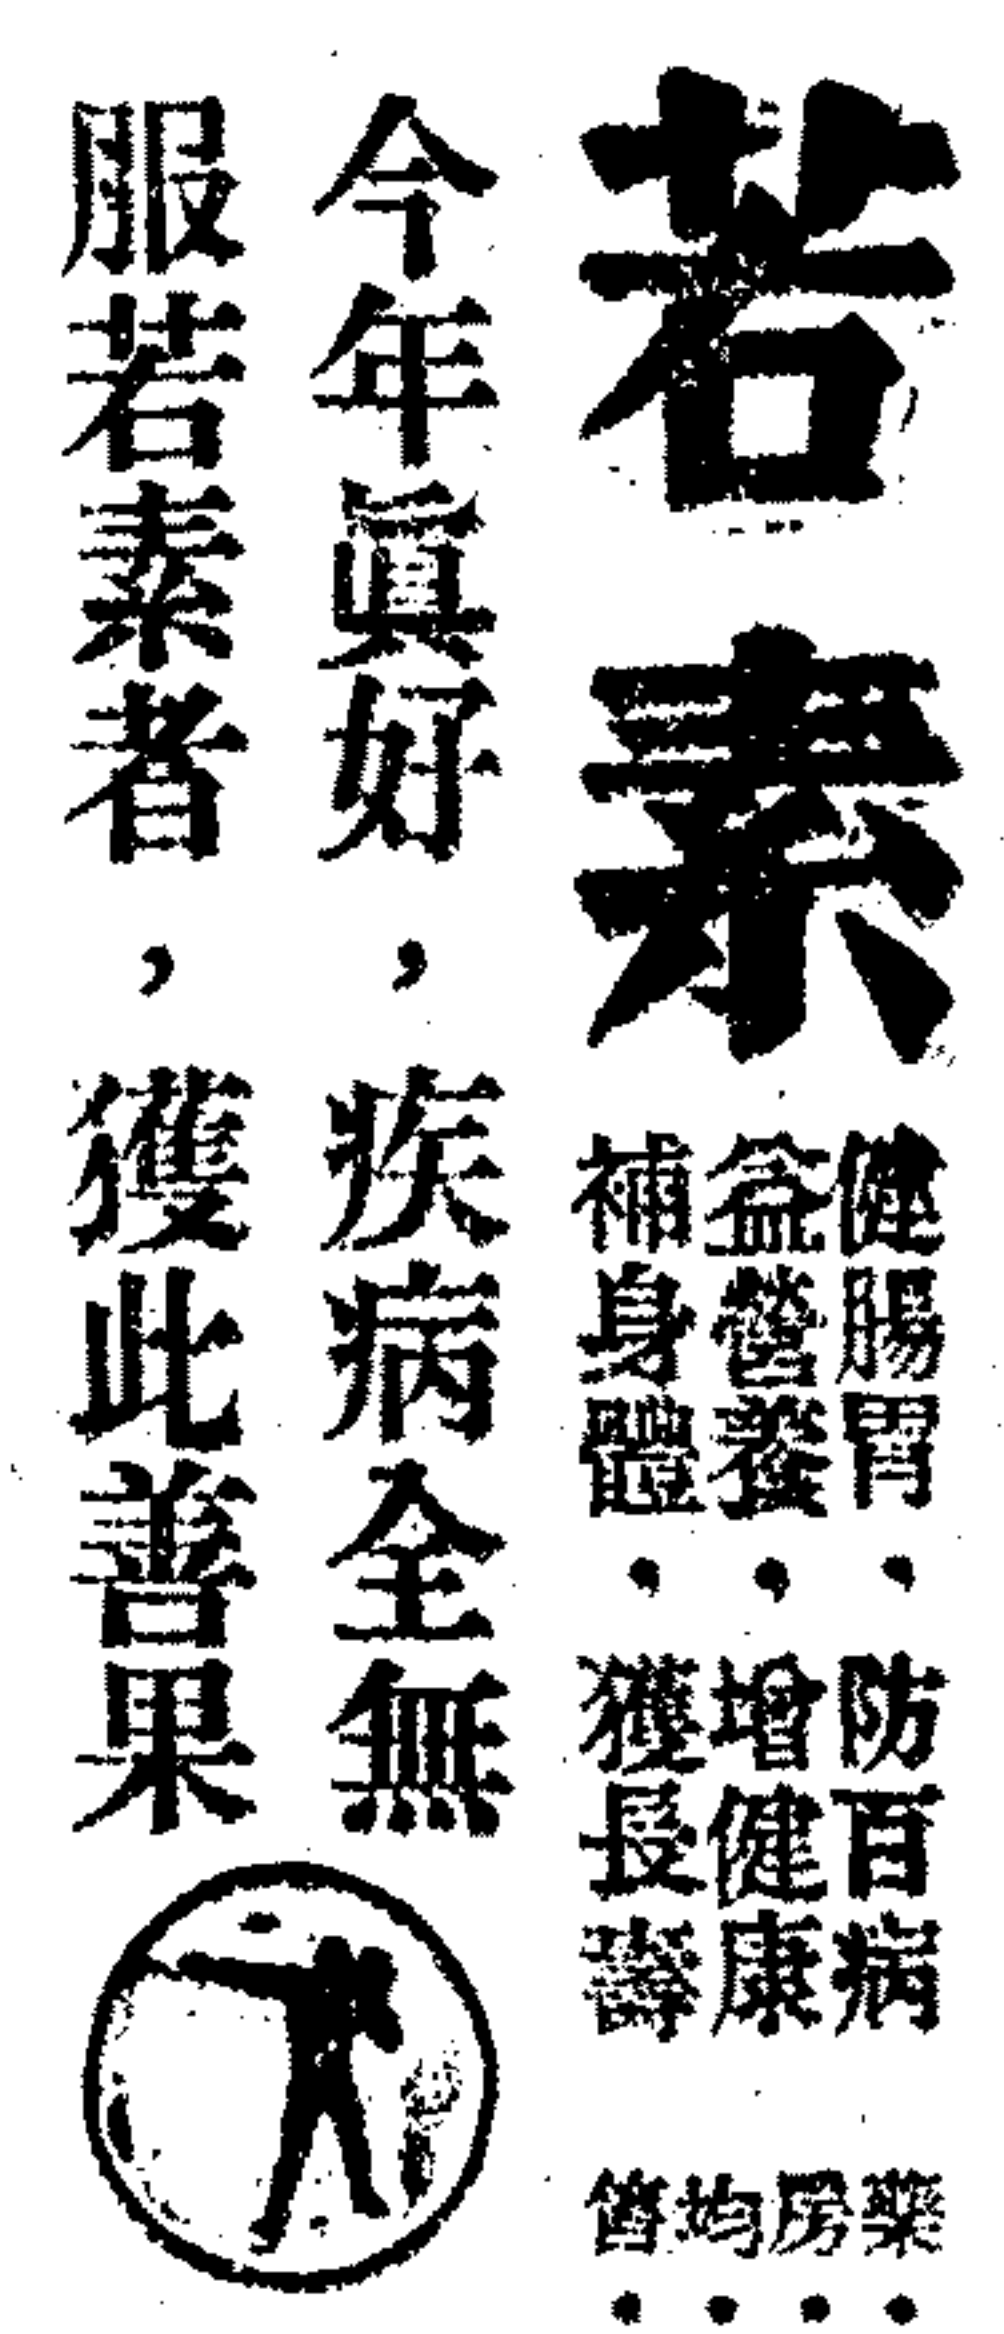 若素
健腸胃，防百病
益營養，增健康
補身體，獲長壽
藥房均售
今年眞好，疾病全無
服若素者，獲此善果